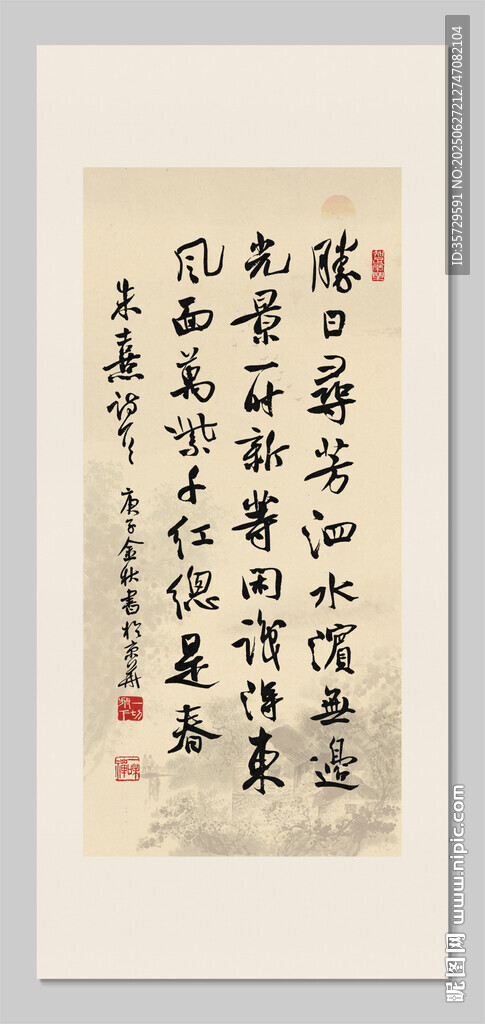 勝日尋芳泗水濱無邊
光景一时新等閑識得東
風面萬紫千紅總是春
朱熹詩
庚子金秋書於京華
一切放下
昵图网 www.nipic.com
ID:35729591 NO:20250627212747082104